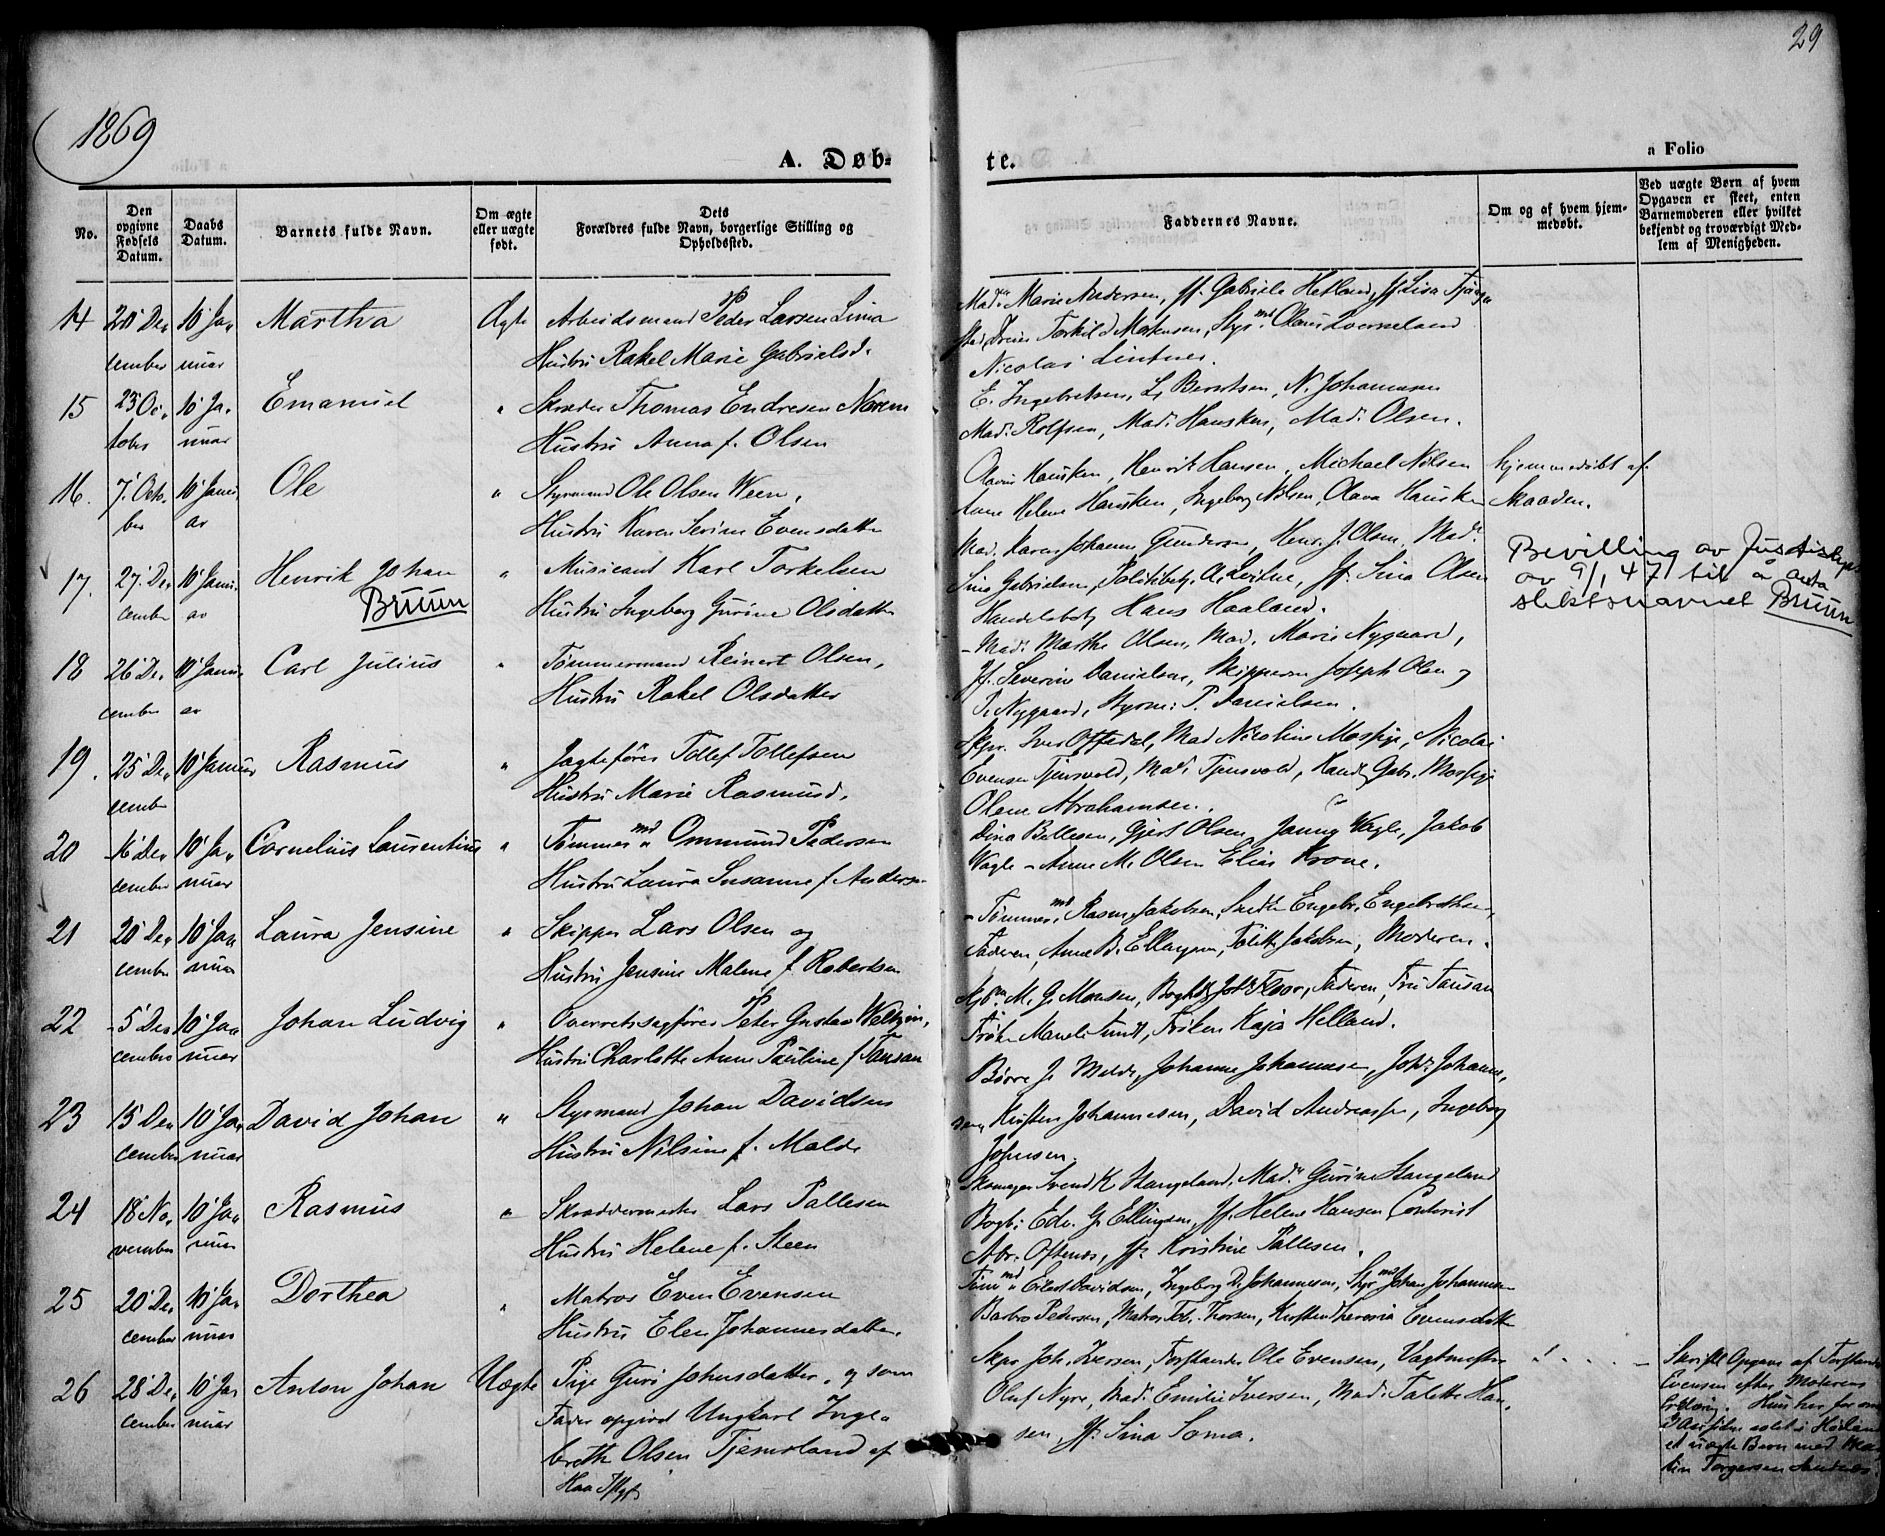 29
1869
a Folio
A. Døb-
te.
No.
Den opgivne Fødsels Datum.
Daabs Datum.
Barnets fulde Navn.
Om ægte eller uægte født.
Dets Forældres fulde Navn, borgerlige Stilling og Opholdssted.
Faddernes Navne.
Om og af hvem hjemmedøbt.
Ved uægte Børn af hvem Opgaven er skeet, enten Barnemoderen eller hvilket bekjendt og troværdigt Medlem af Menigheden.
14 20 De- 10 Ja- Martha Ægte Arbeidsmand Peder Larsen Lima
cember nuar Hustru Rakel Marie Gabrielsd.
Mad. Marie Andersen, Jf. Gabriele Hetland, Jf. Lisa
Torkild Mortensen, Styrmd. Olaus Qverneland
Nicolai Lintner.
15 23 Oc- 10 Ja- Emanuel " Skræder Thomas Endresen Norem
tober nuar Hustru Anna f. Olsen
E. Ingebretsen, L. Berntsen, N. Johannesen
Mad. Rolfsen, Mad. Hausken, Mad. Olsen.
16. 7. Octo- 10 Janu- Ole " Styrmand Ole Olsen Ween,
ber ar Hustru Karen Serine Evensdatter
Olavus Hausken, Henrik Hansen, Michael Nilsen
Anne Helene Hausken, Ingeborg Nilsen, Olava Hausken
hjemmedøbt af
Skaaden.
17. 27. De- 10 Janu- Henrik Johan " Musicant Karl Torkelsen
cember ar Bruun Hustru Ingeborg Gurine Olsdatter
Mad. Karen Johanne Gundersen, Henr. J. Olsen, Mad.
Sine Gabrielsen, Politibetj. A. Jf. Sina Olsen
Handelsbetj. Hans Haaland.
Bevilling av Justisdep.
av 9/1 47 til å anta
slektsnavnet Bruun
18 26 De- 10 Janu- Carl Julius " Tømmermand Reinert Olsen,
cember ar Hustru Rakel Olsdatter
Mad. Marthe Olsen, Mad. Marie Nygaard,
Jf. Severine Danielsen, Skipperne Joseph Olsen og
P. Nygaard, Styrm. P. Danielsen.
19. 25 De- 10 Januar Rasmus " Jagtefører Tollef Tollefsen
cember Hustru Marie Rasmusd.
Skpr. Iver Oftedal, Mad Nicoline Mossige, Nicolai
Evensen Tjensvold, Mad. Tjensvold, Kand. Gabr. Mossige
Olene Abrahamsen.
20 16 De- 10 Ja- Cornelius Laurentius " Tømmermd. Ommund Pedersen
cember nuar Hustru Laura Susanne f. Anderse-
Dina Pallesen, Gjert Olsen, Janna Vagle, Jakob
Vagle - Anne M. Olsen Elias Krone.
21 20 De- 10 Ja- Laura Jensine " Skipper Lars Olsen og
cember nuar Hustru Jensine Malene f. Robertsen
Tømmermd. Rasm. Jakobsen, Smed Engebr. Engebrethsen,
Faderen, Anne B. Ellingsen, Tolette Jakobsen, Moderen.
22 5 De- 10 Ja- Johan Ludvig " Overretssagfører Peter Gustav Weltzin,
cember nuar Hustru Charlotte Anne Pauline f. Tausan
Kjbm. M. G. Monsen, Boghdl. Joh. Floor, Faderen, Fru Tausan
Frøken Sundt, Frøken Kaja Helland.
23 15 De- 10 Ja- David Johan " Styrmand Johan Davidsen
cember nuar Hustru Nilsine f. Malde
Børre J. Melde, Johanne Johannesen, Joh. Johanne-
sen, Kirsten Johannesen, David Andreassen, Ingeborg
Johnsen.
24 18 No- 10 Ja- Rasmus " Skræddermester Lars Pallesen
vember nuar Hustru Helene f. Steen
Skomager Svend K Stangeland, Mad. Gurine Stangeland
Bogb. Edv. G. Ellingsen, Jf. Helene Hansen, Contorist
Abr. Oftenes, Jf. Kristine Pallesen.
25 20 De- 10 Ja- Dorthea " Matros Even Evensen
cember nuar Hustru Elen Johannesdatter.
Tømmd. Eilert Davidsen, Ingeborg D. Johannesen, Styrmd. Johan Johannesen
Barbro Pedersen, Matros Thorsen, Kirsten Evensdatter
26 28 De- 10 Ja- Anton Johan Uægte Pige Guri Johnsdatter, og som
cember nuar Fader opgivet Ungkarl Inge-
breth Olsen Tjemsland af
Haa
Skpr Joh. Iversen, Forstander Ole Evensen, Vagtmester
Oluf Nyre, Mad. Emilie Iversen, Mad. Talette Han-
sen, Jf. Sina Soma.
Skriftl Opgave af Forstander
Evensen efter Moderens
Erklæring. Hun har for om
et uægte Barn med
Torgersen